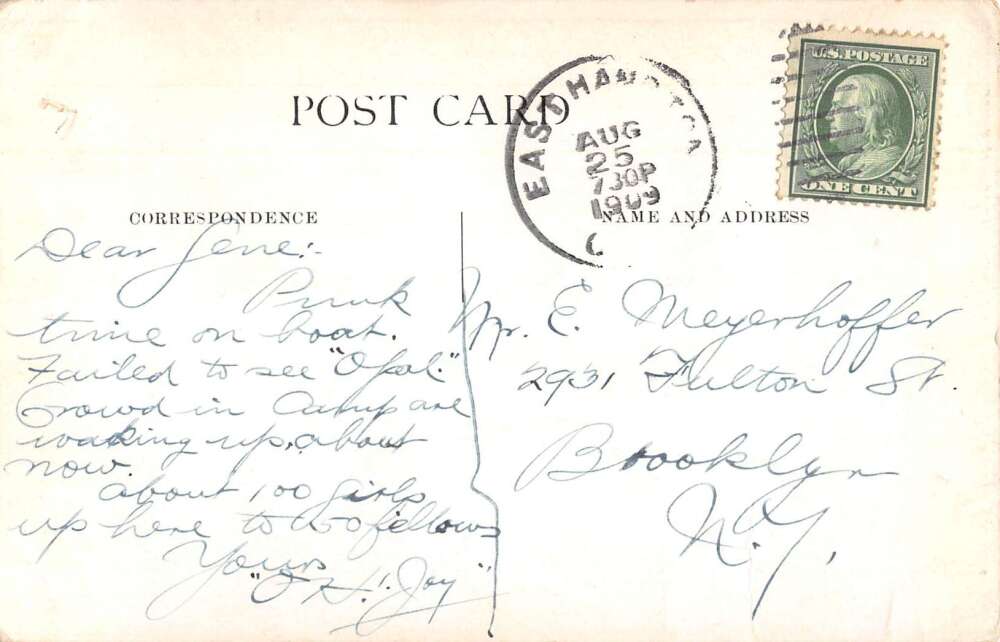 POST CARD
U.S. POSTAGE
ONE CENT
EAST HAMPTON
AUG
25
730P
1909
C
CORRESPONDENCE
NAME AND ADDRESS
Dear Gene:-
Punk
time on boat.
Failed to see "Opal."
Crowd in Camp are
waking up, about
now.
About 100 girls
up here to 50 fellows
Yours
"O H! Joy"
Mr. E. Meyerhoffer
2931 Fulton St.
Brooklyn
N.Y.